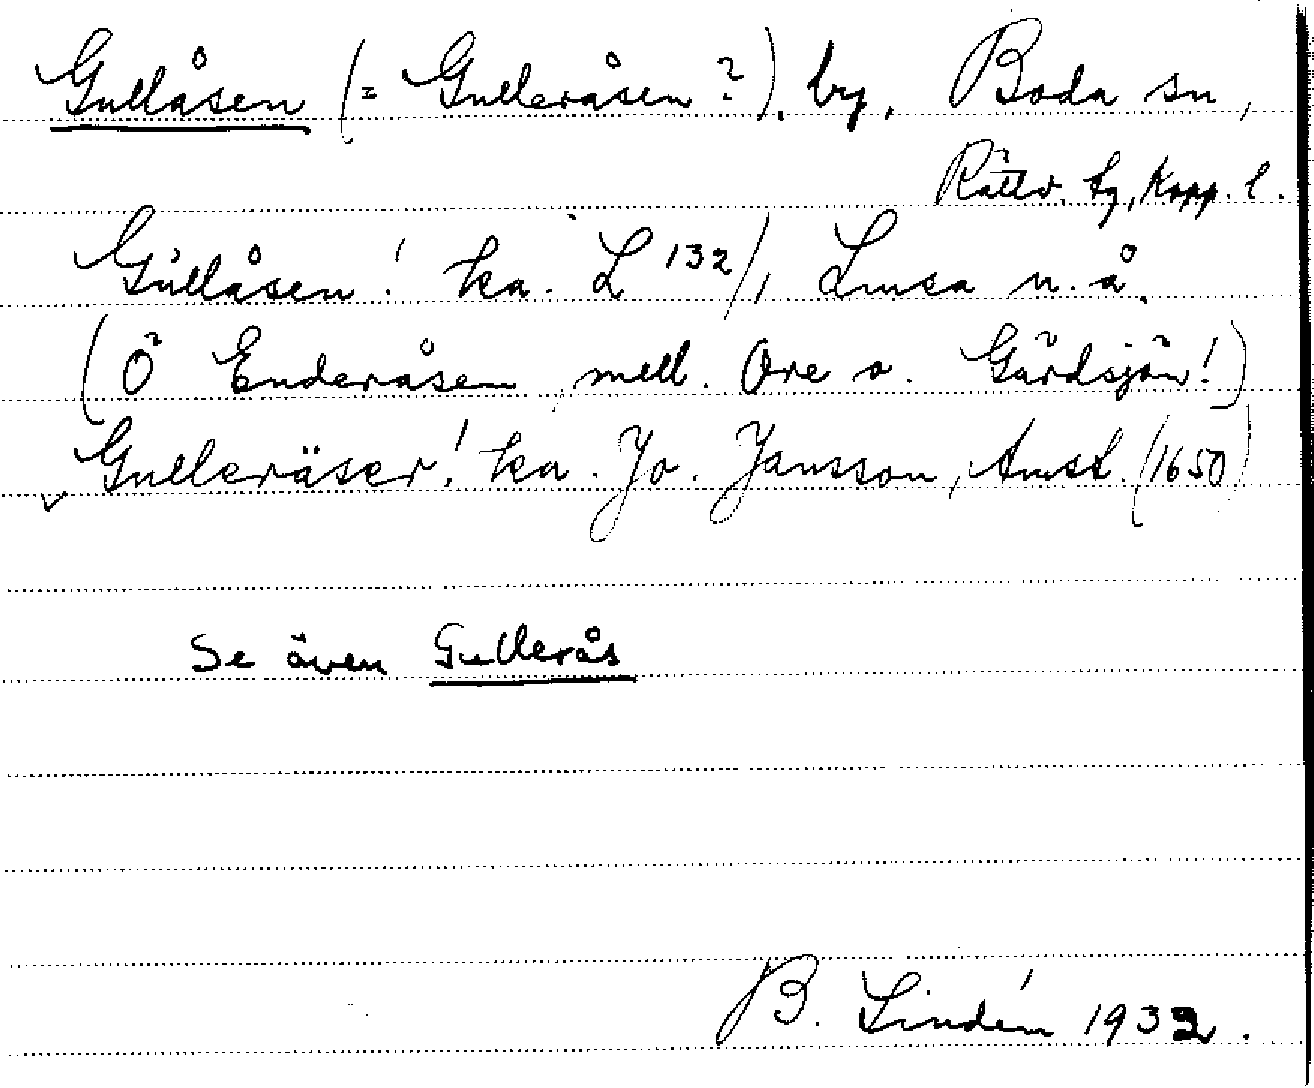 Gullåsen (= Gulleråsen?). by, Boda sn,
Rättv. tg, Kopp. l.
Gullåsen! ka. L 132/1, Limsa n. å.
(Ö Enderåsen mell. Ore o. Gärdsjön!)
Gulleräser! ka. Jo. Jansson, Amst. (1650)
Se även Gullerås
B. Lindén 1932.